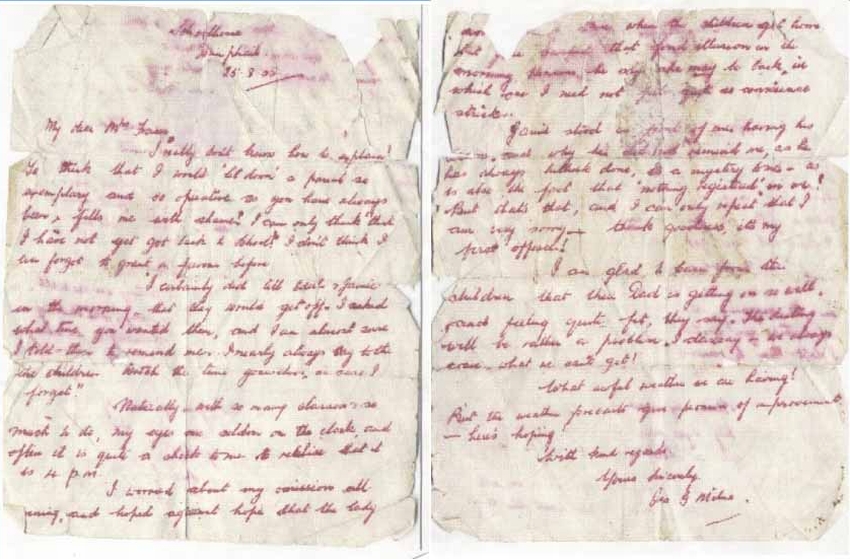 Schoolhouse
25.3.
My dear Mrs
I really don't know how to explain!
To think that I would 'let down' a parent so
exemplary and co operative as you have always
been, fills me with shame! I can only think that
I have not yet got back to School! I don't think I
ever forgot to grant a favour before.
I certainly did tell
in the morning that they would get off. I asked
what time you wanted them, and I am almost sure
I told them to remind me. I nearly always say to the
children "Watch the time yourselves, in case I
forget"
Naturally with so many classes & so
much to do, my eyes are seldom on the clock, and
often it is quite a shock to me to realise that it
is 4 p.m.
I worried about my omission all
evening, and hoped against hope that the lady
when the children got home
But
morning persons be
which case I need not feel quite so conscience
stricken.
stood in front of me having his
and why he did not remind me, as he
has always hitherto done, is a mystery to me - as
is also the fact that 'nothing registered' in me!
But that's that, and I can only repeat that I
am very sorry - thank goodness, it's my
first offence!
I am glad to learn from the
children that their Dad is getting on so well
and feeling quite fit, they say. His dieting
will be rather a problem, I daresay - we always
crave what we can't get!
What awful weather we are having!
But the weather forecasts give promise of improvement
- here's hoping
With kind regards
Yours sincerely
Geo G Milne.